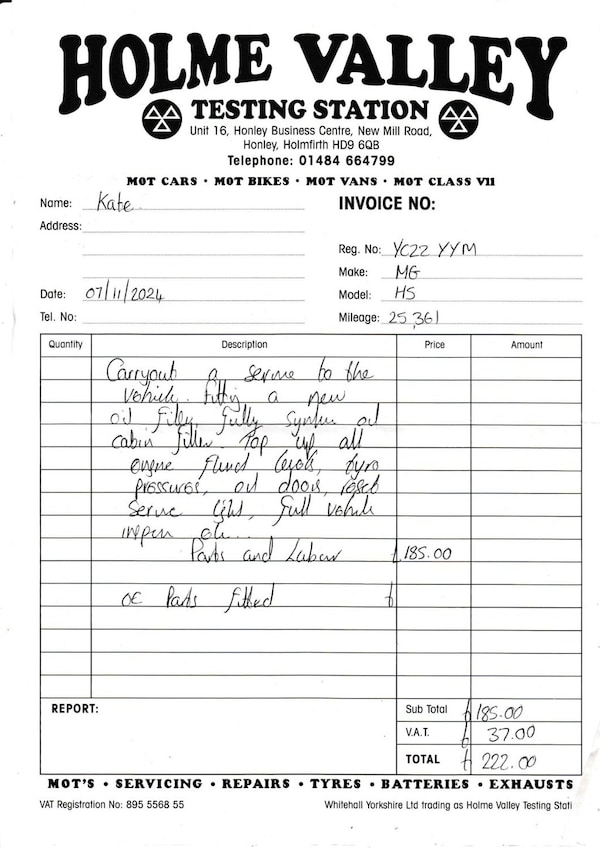 HOLME VALLEY
TESTING STATION
Unit 16, Honley Business Centre, New Mill Road,
Honley, Holmfirth HD9 6QB
Telephone: 01484 664799
MOT CARS • MOT BIKES • MOT VANS • MOT CLASS V11
Name: Kate
INVOICE NO:
Address:
Reg. No: YC22 YYM
Make: MG
Date: 07/11/2024
Model: HS
Tel. No:
Mileage: 25,361
Quantity Description Price Amount
Carryout a service to the
vehicle. fitting a new
oil filter, fully synthe oil
cabin filter. Top up all
engine fluid levels, tyre
pressures, oil doors, reset
service light, full vehicle
Parts and Labour £185.00
OE Parts fitted £
REPORT:
Sub Total £185.00
V.A.T. £ 37.00
TOTAL £ 222.00
MOT'S • SERVICING • REPAIRS • TYRES • BATTERIES • EXHAUSTS
VAT Registration No: 895 5568 55
Whitehall Yorkshire Ltd trading as Holme Valley Testing Stati